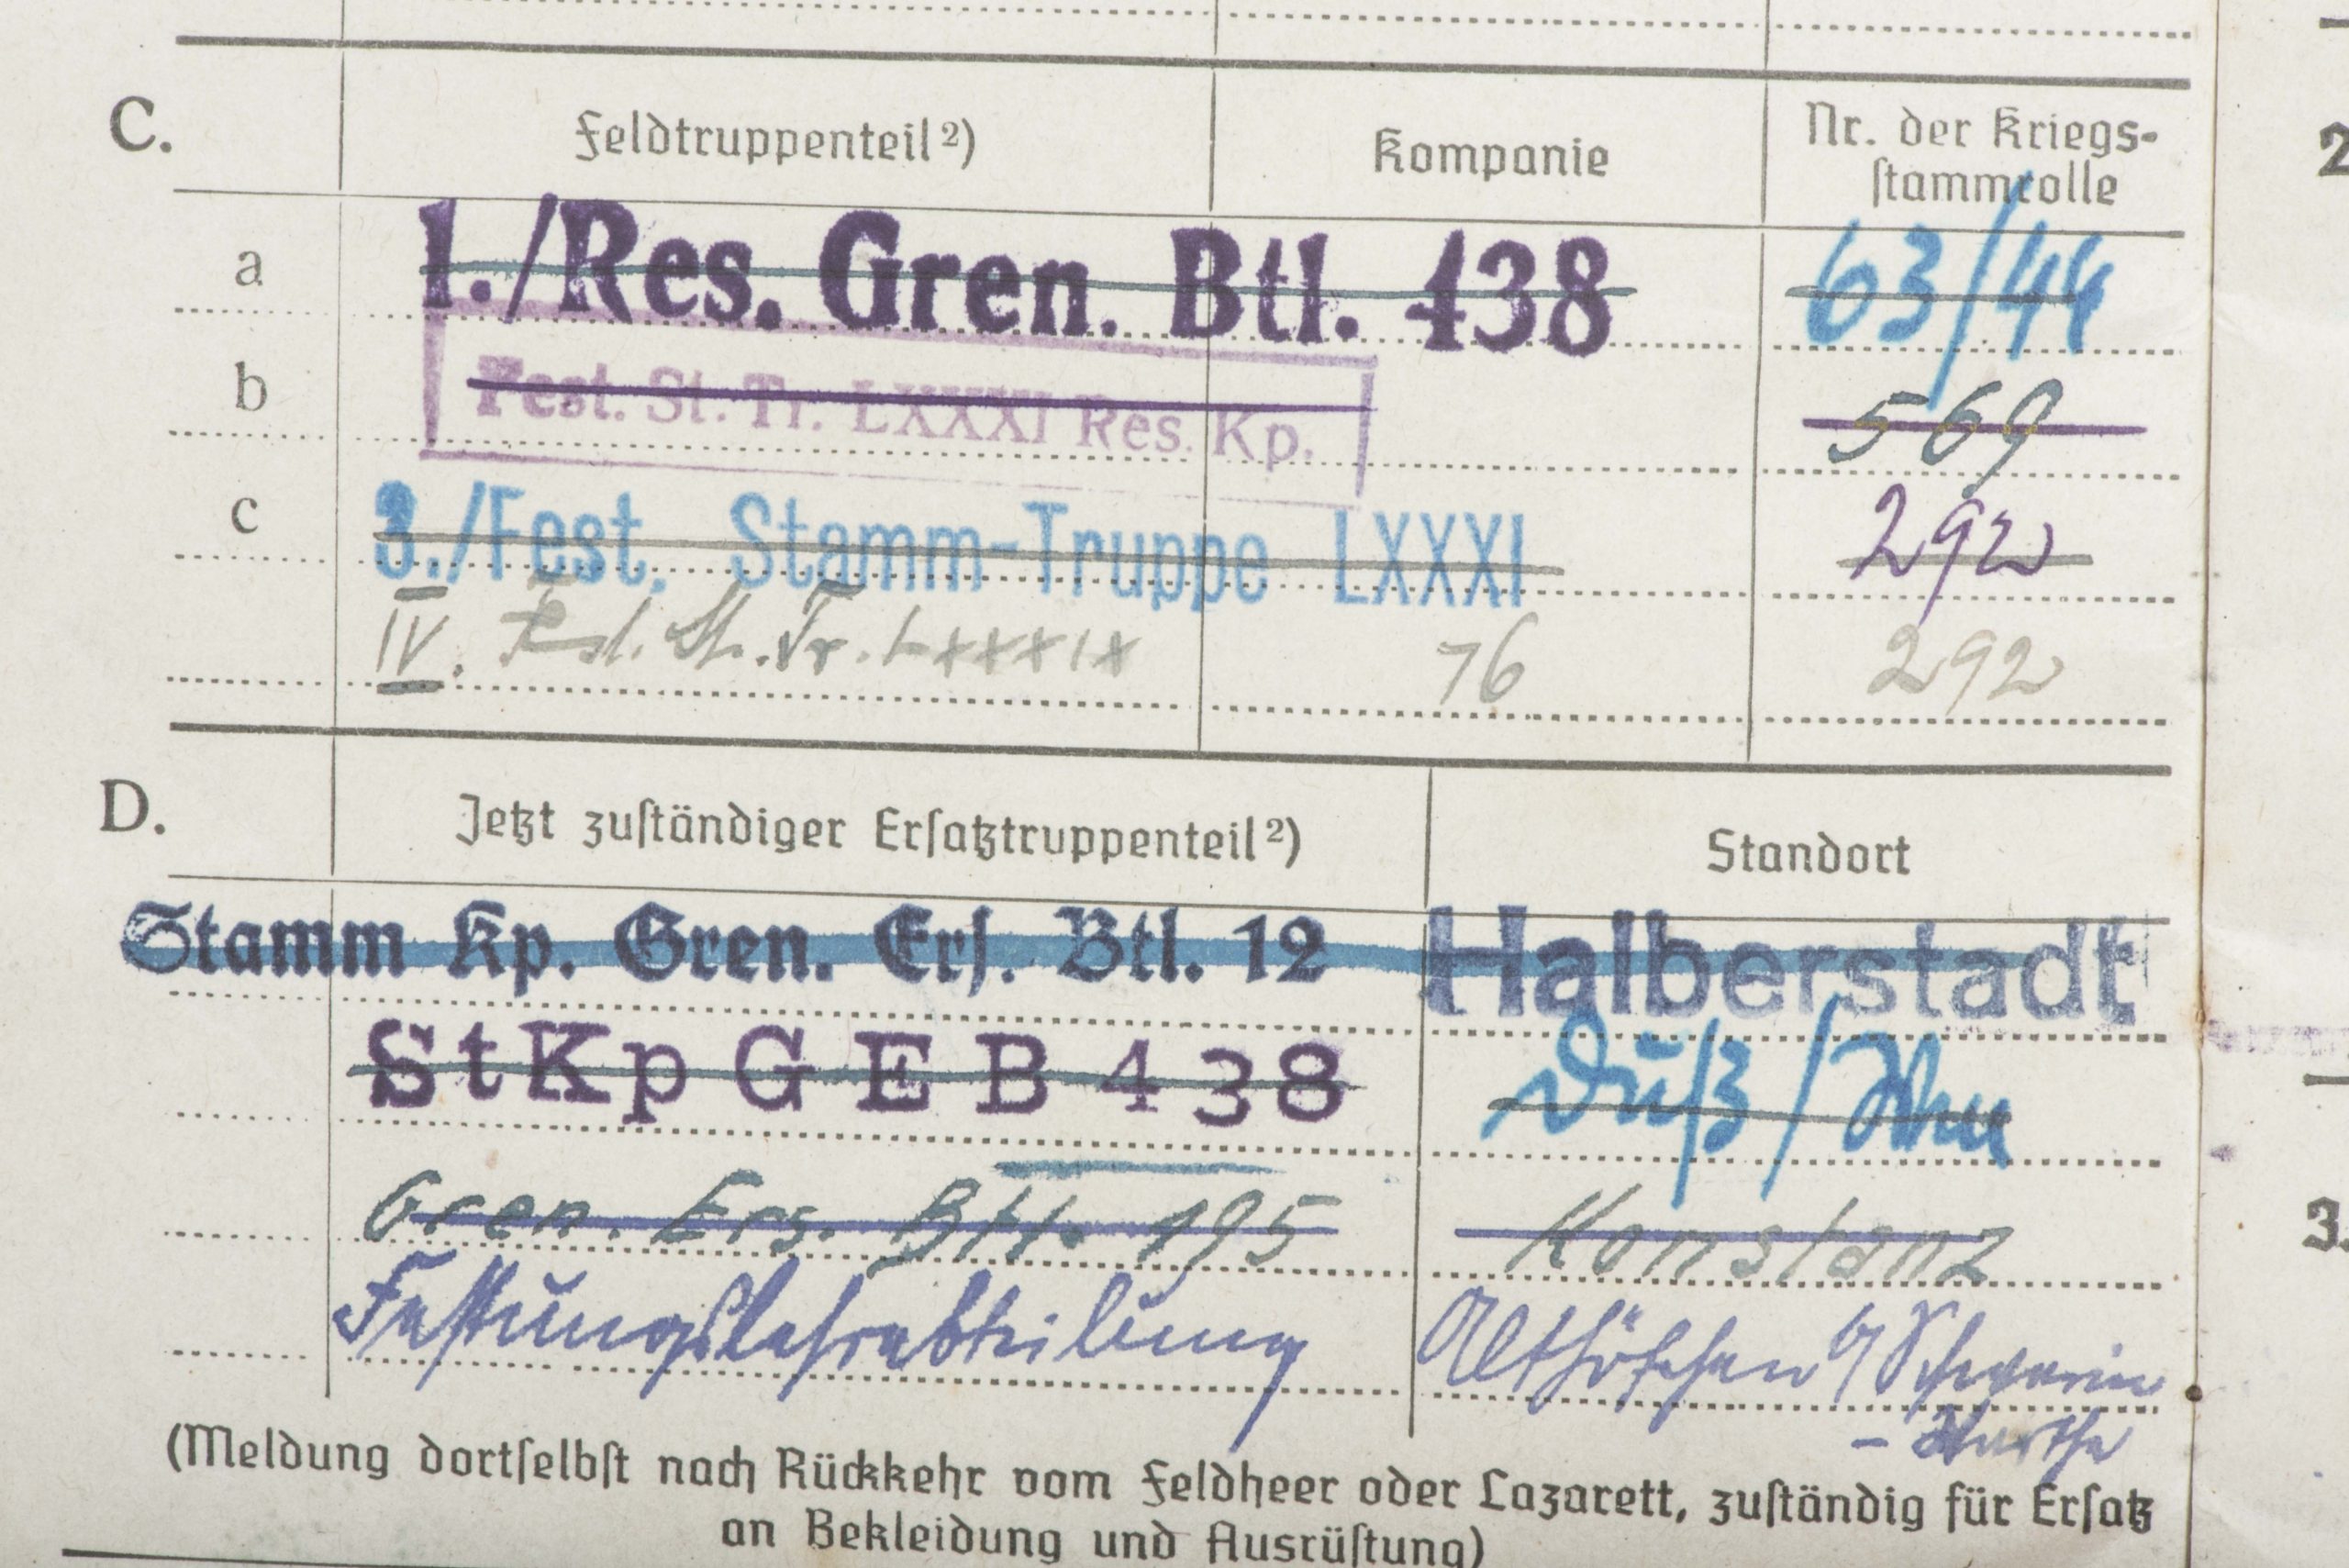 C. Feldtruppenteil²) Kompanie Nr. der Kriegs-
stammrolle
a 1./Res. Gren. Btl. 438 63/44
b Fest. St. Tr. LXXXI Res. Kp. 569
c 3./Fest. Stamm-Truppe LXXXI 292
IV. Fest. St. Tr. LXXXIX 76 292
D. Jetzt zuständiger Ersatztruppenteil²) Standort
Stamm Kp. Gren. Ers. Btl. 12 Halberstadt
StKp G E B 438
Gren. Ers. Btl. 195 Konstanz
Festungslehrabteilung Althöfchen b/ Schwerin
- Warthe
(Meldung dortselbst nach Rückkehr vom Feldheer oder Lazarett, zuständig für Ersatz
an Bekleidung und Ausrüstung)
2
3.